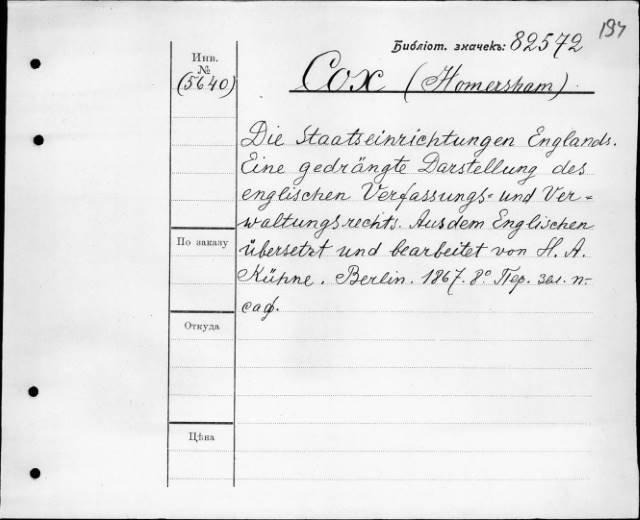 194
Библіот. значекъ: 82572
Инв.
№
(5640)
Cox (Homersham)
Die Staatseinrichtungen Englands.
Eine gedrängte Darstellung des
englischen Verfassungs- und Ver=
waltungsrechts. Aus dem Englischen
По заказу
übersetzt und bearbeitet von H. A.
Kühne. Berlin. 1867. 8º. Пер. зел. п-
саф.
Откуда
Цѣна